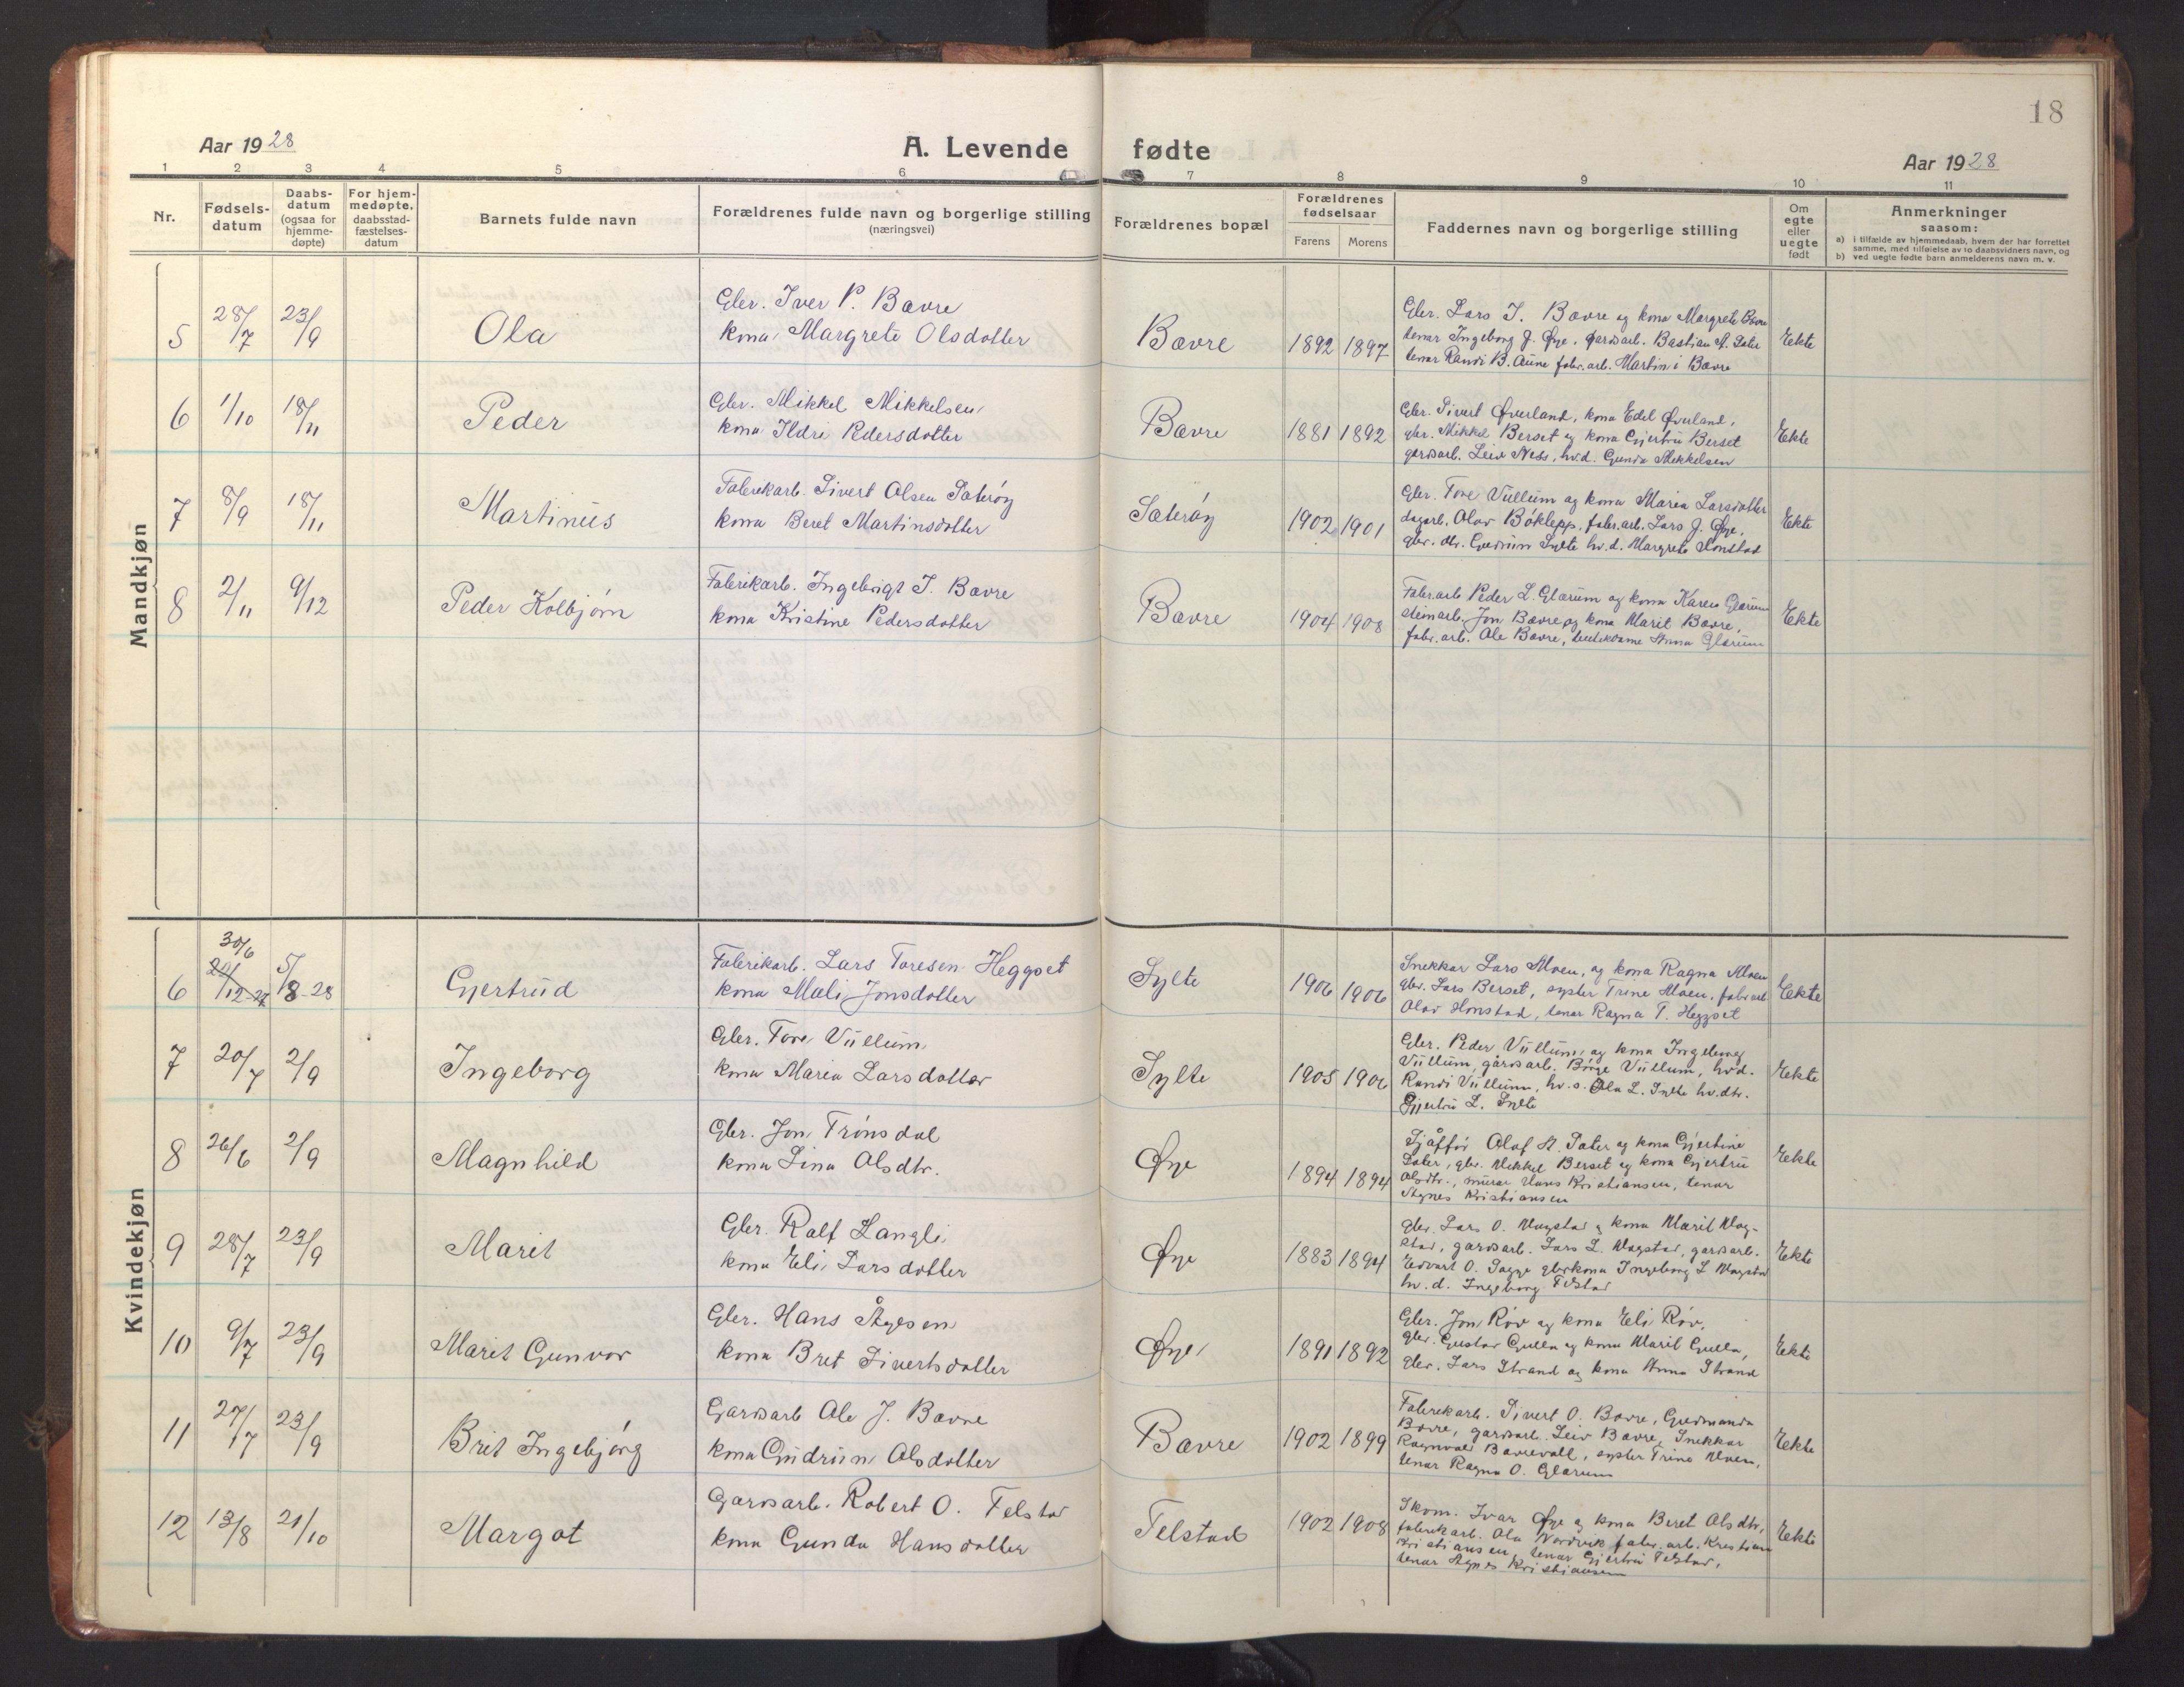 18
Aar 1928
A. Levende fødte
Aar 1928
1 2 3 4 5 6 7 8 9 10 11
Nr.
Fødsels-
datum
Daabs-
datum
(ogsaa for
hjemme-
døpte)
For hjem-
medøpte,
daabsstad-
fæstelses-
datum
Barnets fulde navn
Forældrenes fulde navn og borgerlige stilling
(næringsvei)
Forældrenes bopæl
Forældrenes
fødselsaar
Farens Morens
Faddernes navn og borgerlige stilling
Om
egte
eller
uegte
født
Anmerkninger
saasom:
a) i tilfælde av hjemmedaab, hvem der har forrettet
samme, med tilføielse av to daabsvidners navn, og
b) ved uegte fødte barn anmelderens navn m. v.
Mandkjøn
5 28/7 23/9 Ola
Gbr. Iver P. Bævre
kona Margrete Olsdotter
Bævre 1892 1897
Gbr. Lars I. Bævre og kona Margrete Bævre
tenar Ingeborg J. Øye, gardsarb. Bastian A. Sæter
tenar Randi B. Aune fabr. arb. Martin i Bævre
Ekte
6 1/10 18/11 Peder
Gbr. Mikkel Mikkelsen
kona Ildri Pedersdotter
Bævre 1881 1892
Gbr. Sivert Øverland, kona Edel Øverland,
gbr. Mikkel Berset og kona Gjertru Berset
gardsarb. Leiv Ness, hv.d. Gunda Mikkelsen
Ekte
7 8/9 18/11 Martinus
Fabrikarb. Sivert Olsen Sæterøy
kona Beret Martinsdotter
Sæterøy 1902 1901
Gbr. Tore Vullum og kona Maria Larsdotter
dagarb. Olav Bøklepp, fabr. arb. Lars J. Øye,
gbr. dtr. Gudrun Sylte hv.d. Margrete Honstad
Ekte
8 2/11 9/12 Peder Kolbjørn
Fabrikarb. Ingebrigt I. Bævre
kona Kristine Pedersdotter
Bævre 1904 1908
Fabr.arb Peder L. Glærum og kona Karen Glærum
steinarb. Jon Bævre og kona Marit Bævre,
fabr. arb. Ole Bævre, butikdame Anna Glærum
Ekte
Kvindekjøn
6 30/6 20/12-27 5/8-28 Gjertrud
Fabrikarb. Lars Toresen Heggset
kona Mali Jonsdotter
Sylte 1906 1906
Snekkar Lars Moen, og kona Ragna Moen
gbr. Lars Berset, syster Trine Moen, fabr arb
Olav Honstad, tenar Ragna T. Heggset
Ekte
7 20/7 2/9 Ingeborg
Gbr. Tore Vullum
kona Maria Larsdotter
Sylte 1905 1906
Gbr. Peder Vullum og kona Ingeborg
Vullum, gårdsarb. Børge Vullum, hv.d.
Randi Vullum, hv. s. Ola L. Sylte hv.dtr.
Gjertru L. Sylte
Ekte
8 26/6 2/9 Magnhild
Gbr. Jon Trønsdal
kona Lina Olsdtr.
Øye 1894 1894
Sjåffør Olaf A. Sæter og kona Gjertine
Sæter, gbr. Mikkel Berset og kona Gjertru
Olsdtr., murar Hans Kristiansen, tenar
Agnes Kristiansen
Ekte
9 28/7 23/9 Marit
Gbr. Ralf Langli
kona Eli Larsdotter
Øye 1883 1894
Gbr. Lars O. Mogstad og kona Marit Mog-
stad, gardsarb. Lars L. Mogstad, gardsarb.
Edvart O. Sagge gbrkona Ingeborg L Mogstad
hv. d. Ingeborg Telstad
Ekte
10 9/7 23/9 Marit Gunvor
Gbr. Hans Ågesen
kona Bret Sivertsdotter
Øye 1891 1892
Gbr. Jon Røv og kona Eli Røv,
gbr. Gustav Gulla og kona Marit Gulla,
gbr. Lars Strand og kona Anna Strand
Ekte
11 27/7 23/9 Brit Ingebjørg
Gardsarb Ole J. Bævre
kona Gudrun Olsdotter
Bævre 1902 1899
Fabrikarb. Sivert O. Bævre, Gudmunda
Bævre, gardsarb. Leiv Bævre, Snekkar
Ragnvald Bævrevoll, syster Trine Moen,
tenar Ragna O. Glærum
Ekte
12 13/8 21/10 Margot
Gardsarb. Robert O. Telstad
kona Gunda Hansdotter
Telstad 1902 1908
Skom. Ivar Øye og kona Beret Olsdtr,
fabrikarb. Ola Nordvik fabr. arb. Kristian
Kristiansen, tenar Gjertru Telstad,
tenar Agnes Kristiansen
Ekte